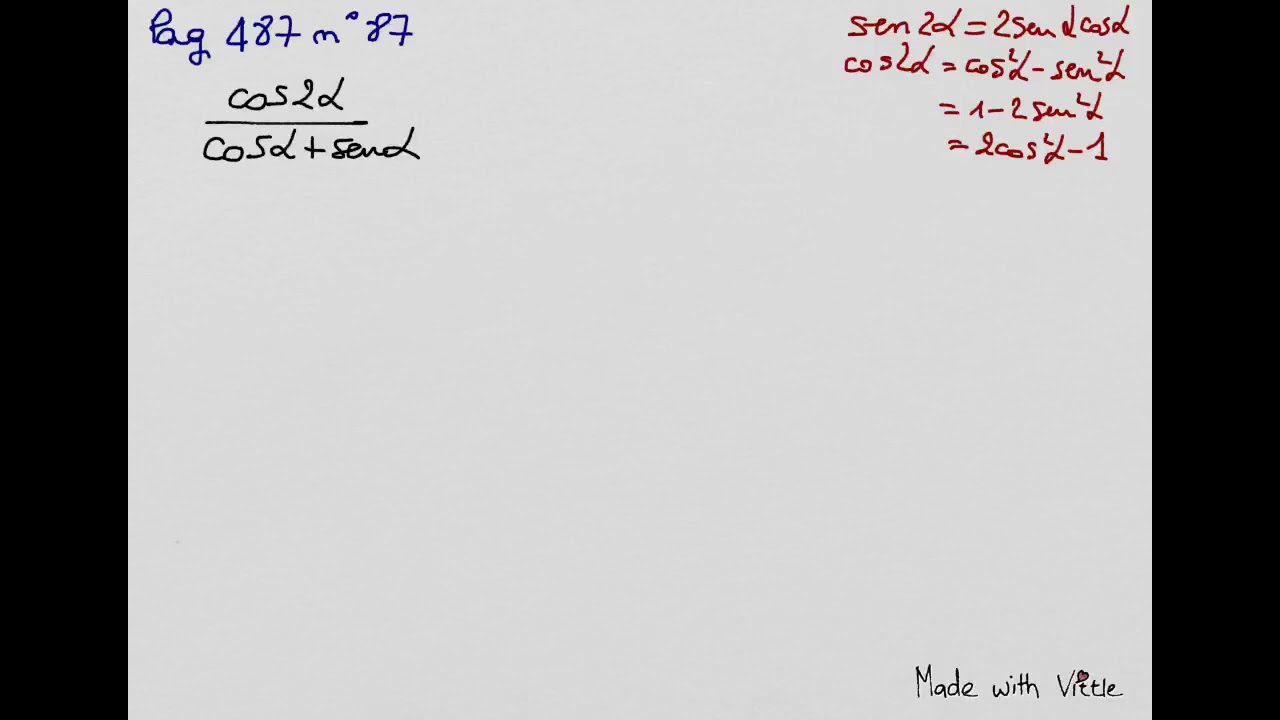 Pag 487 n° 87
cos2α
cosα+senα
sen2α=2senαcosα
cos2α=cos²α-sen²α
=1-2sen²α
=2cos²α-1
Made with Vittle